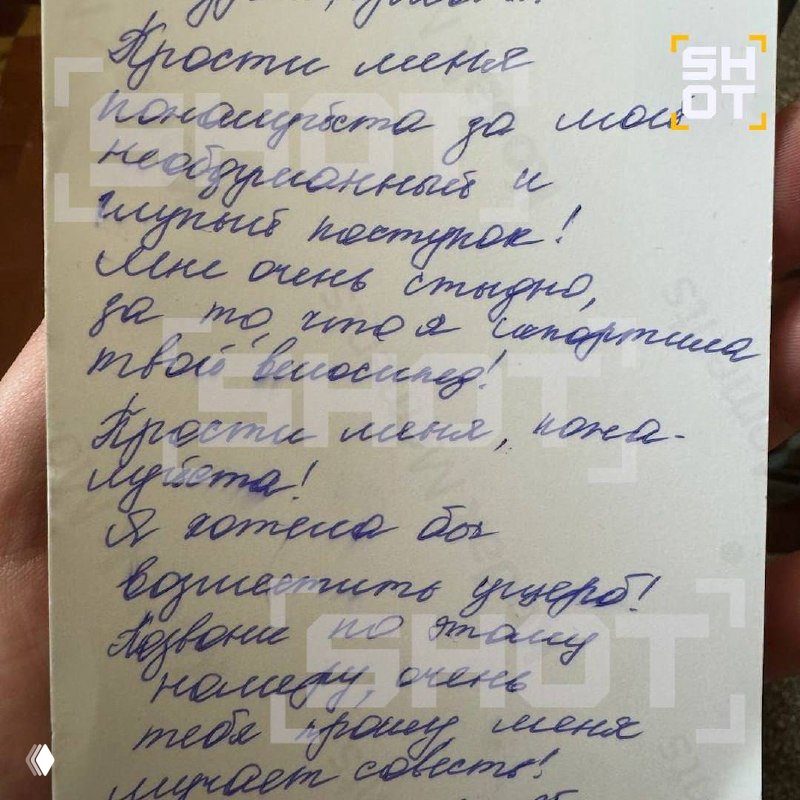 Прости меня
SHOT
пожалуйста за мой
необдуманный и
глупый поступок!
Мне очень стыдно,
за то, что я испортила
твой велосипед!
Прости меня, пожа-
луйста!
Я хотела бы
возместить ущерб!
Позвони по этому
номеру, очень
тебя прошу меня
мучает совесть!
SHOT
SHOT
SHOT